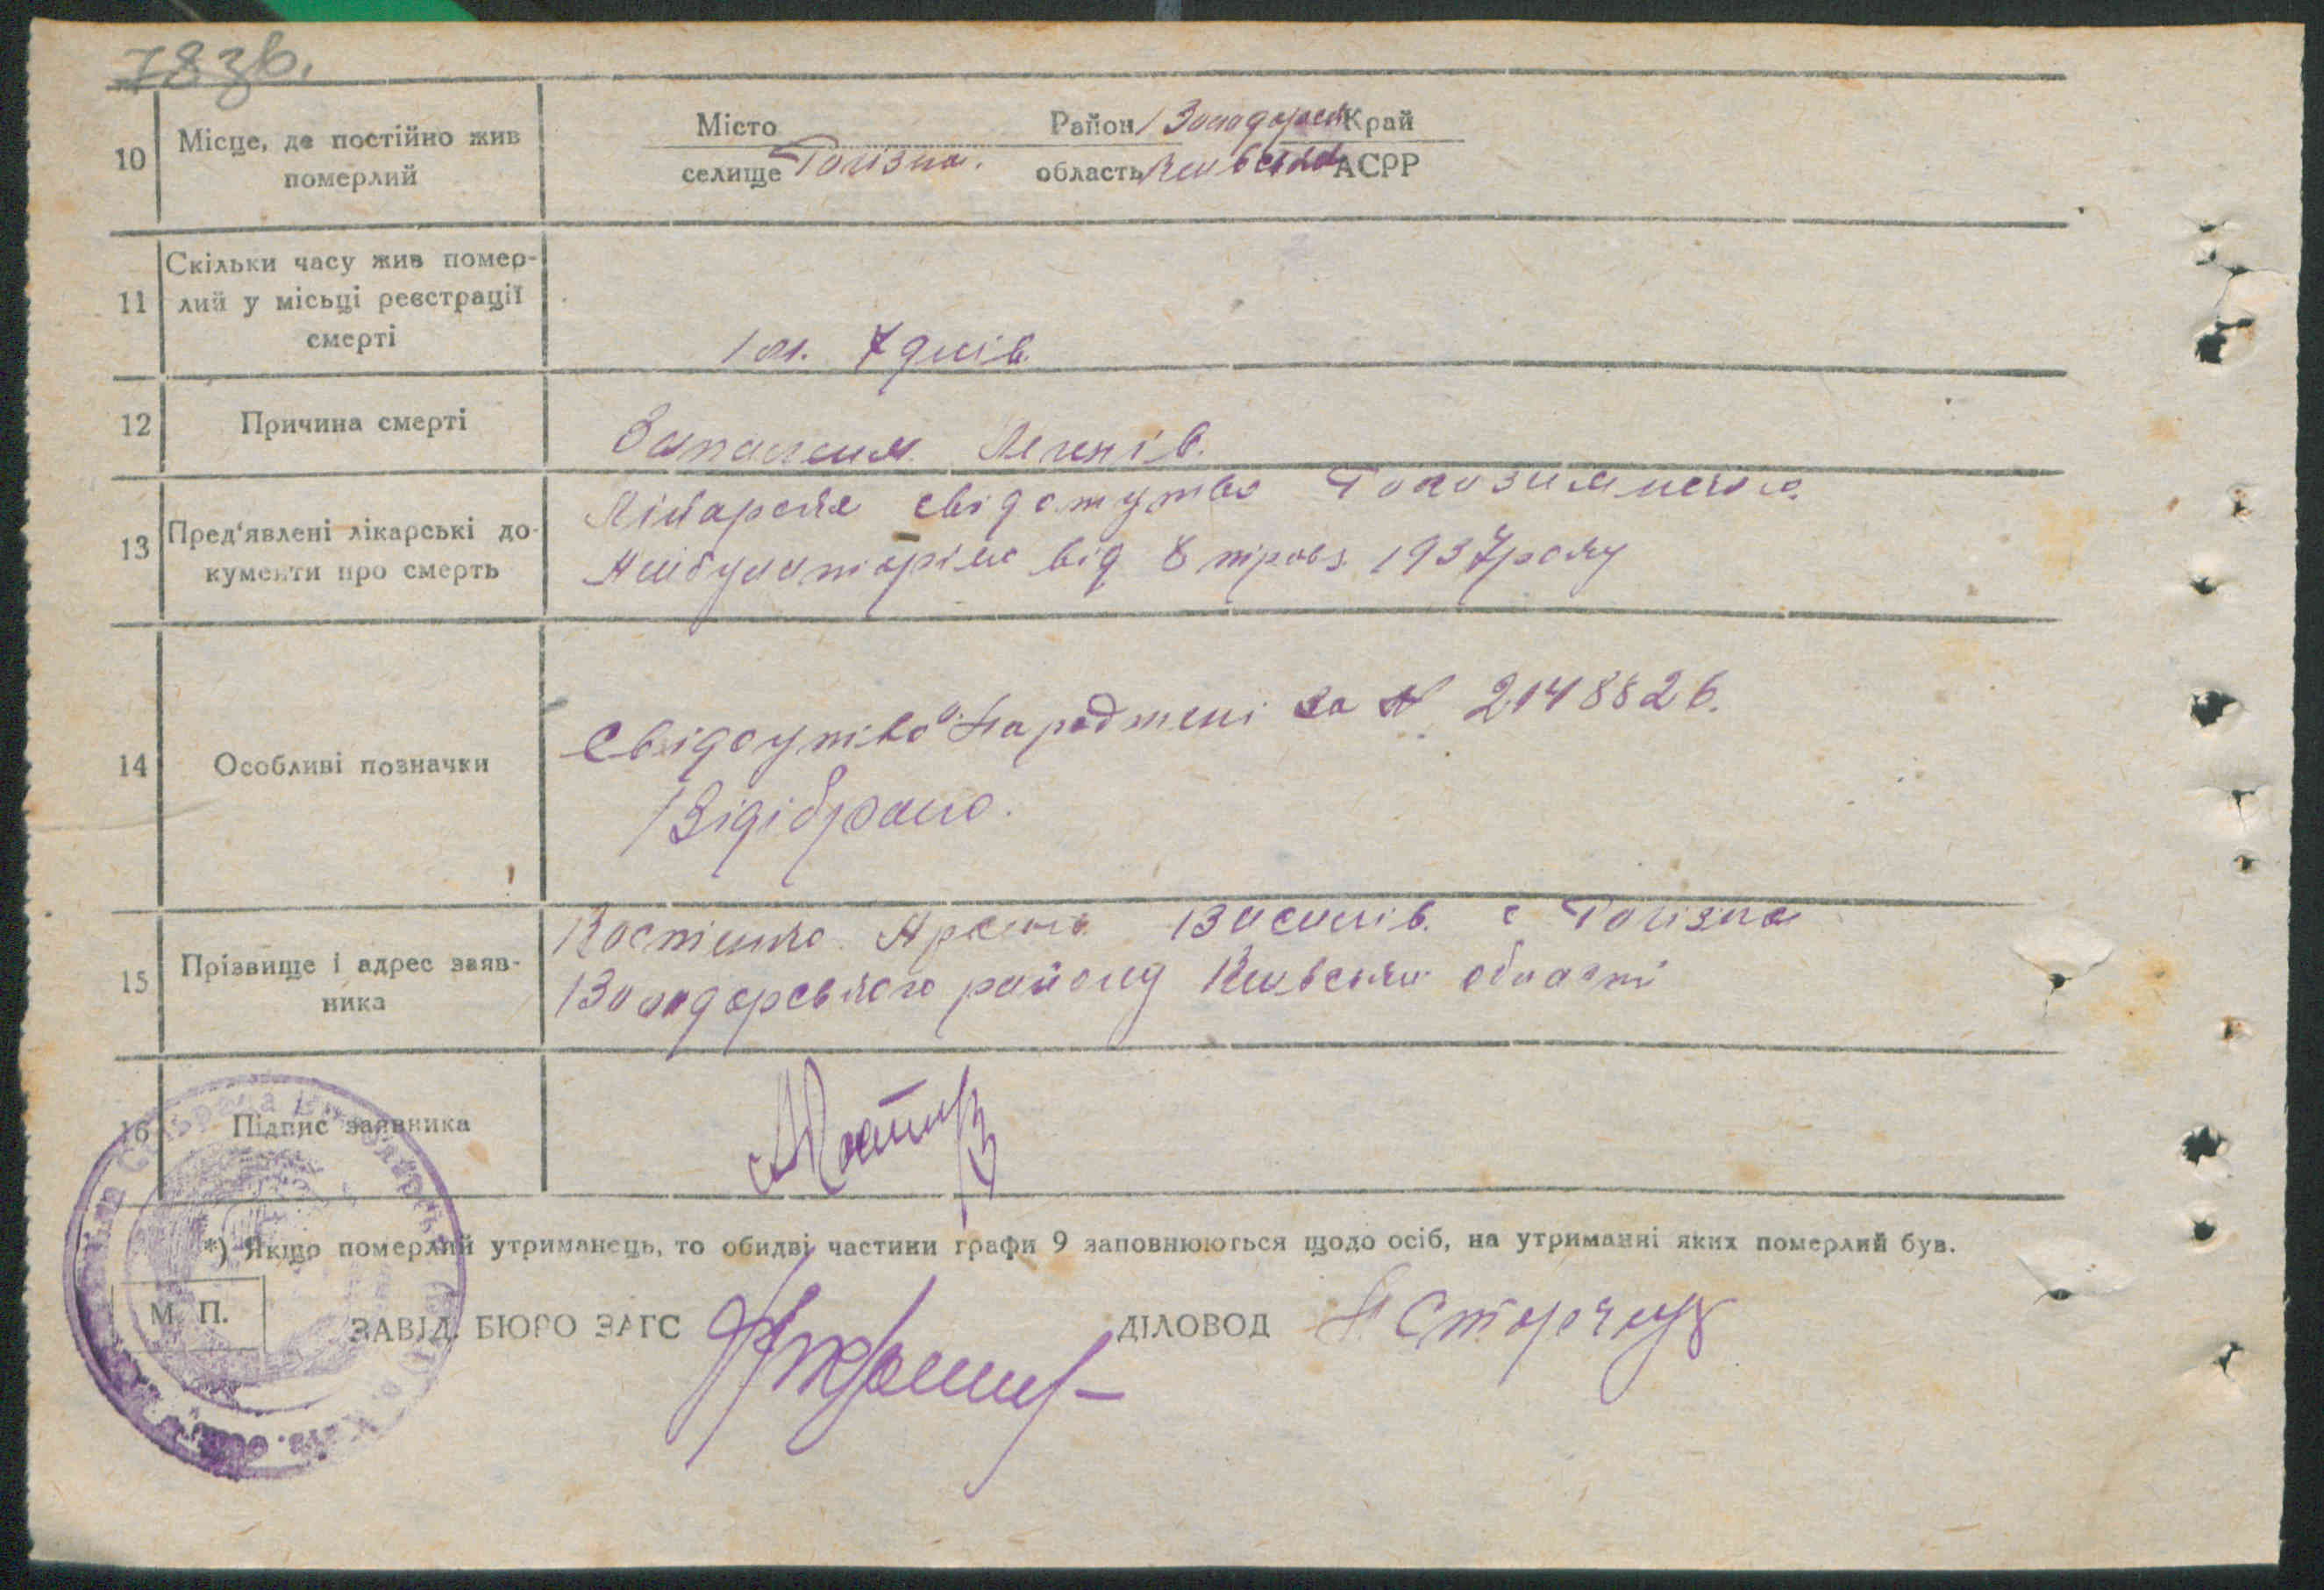 78зв.
10 Місце, де постійно жив померлий
Місто Район Володарськ Край
селище Гопізна. область Київська АСРР
11 Скільки часу жив помер-
лий у місьці реєстрації
смерті
1 м. 7 днів.
12 Причина смерті
Запаленя Легенів.
13 Пред'явлені лікарські до-
кументи про смерть
Лікарске свідотутво
Амбулаторією від 8 травз 1937 року
14 Особливі позначки
Свідоутво о народжені за № 2148826.
Відібрано.
15 Прізвище і адрес заяв-
ника
Костенко Василів. с Гопізна
Володарського району Київської області
16 Підпис заявника
*) Якщо померлий утриманець, то обидві частини графи 9 заповнюються щодо осіб, на утриманні яких померлий був.
М. П.
ЗАВІД. БЮРО ЗАГС ДІЛОВОД